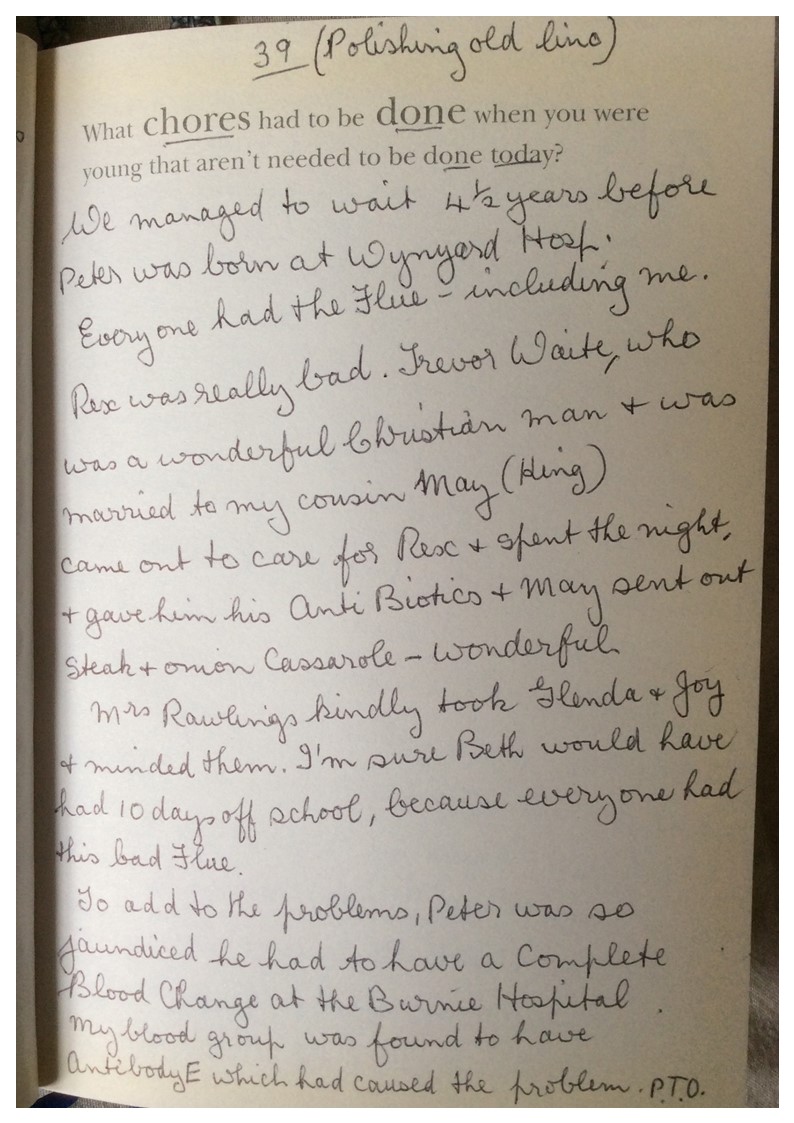 39 (Polishing old lino)
What chores had to be done when you were
young that aren't needed to be done today?
We managed to wait 4½ years before
Peter was born at Wynyard Hosp.
Everyone had the Flue - including me.
Rex was really bad. Trevor Waite, who
was a wonderful Christian man + was
married to my cousin May (King)
came out to care for Rex + spent the night,
+ gave him his Anti Biotics + May sent out
Steak + onion Cassarole - wonderful.
Mrs Rawlings kindly took Glenda + Joy
+ minded them. I'm sure Beth would have
had 10 days off school, because everyone had
this bad Flue.
To add to the problems, Peter was so
jaundiced he had to have a Complete
Blood Change at the Burnie Hospital.
My blood group was found to have
Antibody E which had caused the problem. P.T.O.